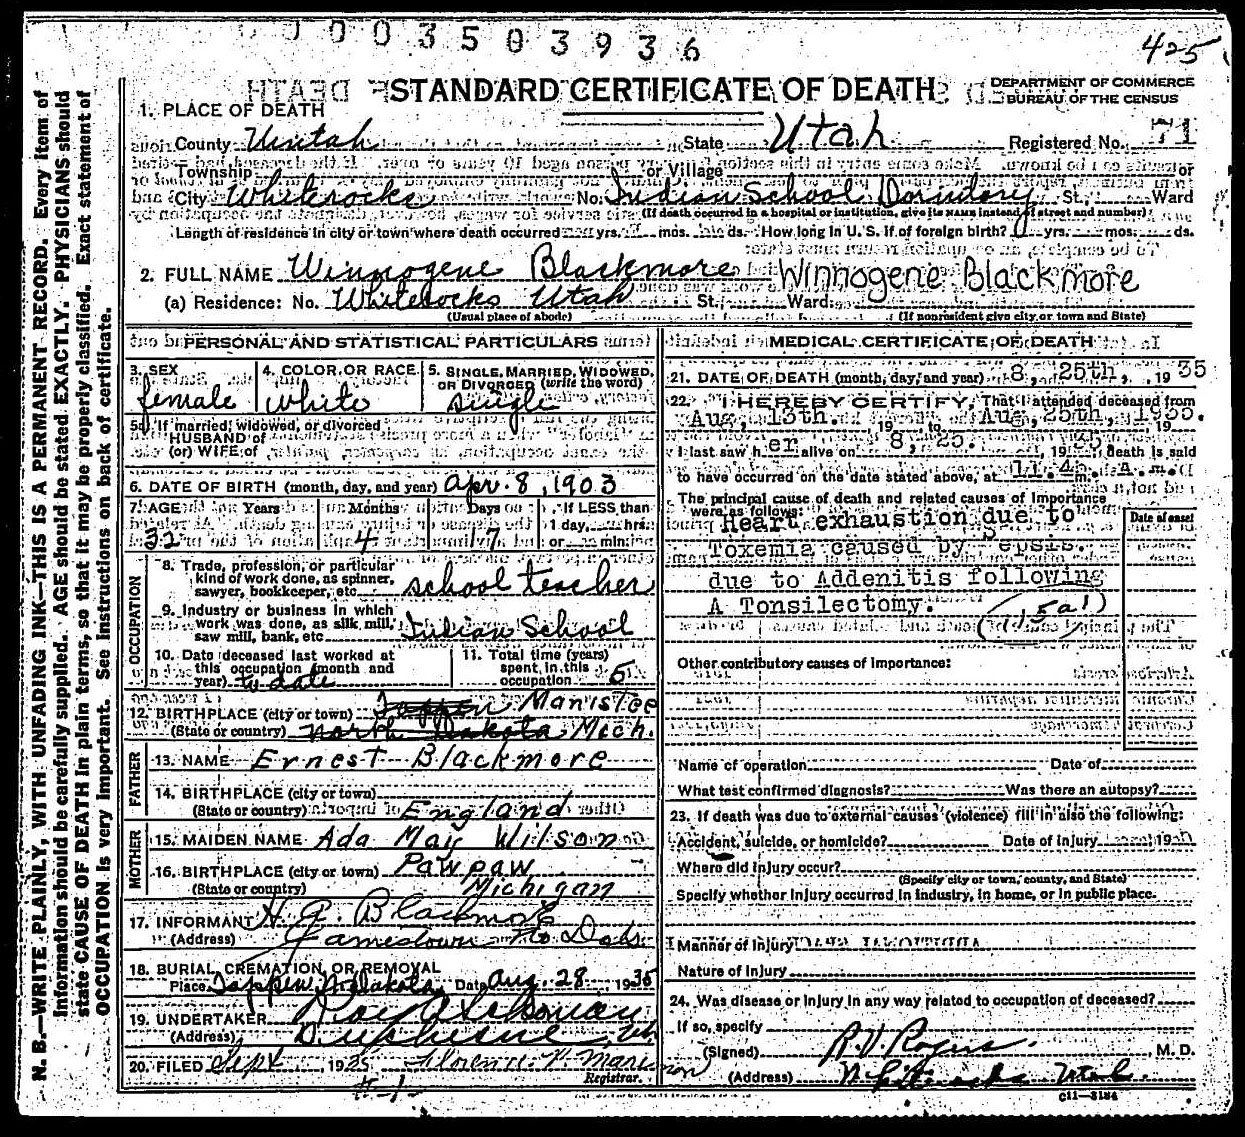 0003503936
425
STANDARD CERTIFICATE OF DEATH
DEPARTMENT OF COMMERCE
BUREAU OF THE CENSUS
1. PLACE OF DEATH
County Uintah State Utah Registered No. 71
Township or Village or
City Whiterocks No. Indian School Dormitory St., Ward
(If death occurred in a hospital or institution, give its NAME instead of street and number)
Length of residence in city or town where death occurred yrs. mos. ds. How long in U. S. if of foreign birth? yrs. mos. ds.
2. FULL NAME Winnogene Blackmore Winnogene Blackmore
(a) Residence: No. Whiterocks Utah St., Ward.
(Usual place of abode) (If nonresident give city or town and State)
PERSONAL AND STATISTICAL PARTICULARS
3. SEX 4. COLOR OR RACE 5. SINGLE, MARRIED, WIDOWED, OR DIVORCED (write the word)
female white single
5a. If married, widowed, or divorced
HUSBAND of
(or) WIFE of
6. DATE OF BIRTH (month, day, and year) Apr. 8, 1903
7. AGE Years Months Days If LESS than 1 day, hrs. or min.
32 4 17
OCCUPATION
8. Trade, profession, or particular kind of work done, as spinner, sawyer, bookkeeper, etc. school teacher
9. Industry or business in which work was done, as silk mill, saw mill, bank, etc. Indian School
10. Date deceased last worked at this occupation (month and year) to date
11. Total time (years) spent in this occupation 5
12. BIRTHPLACE (city or town) Tappen Manistee
(State or country) North Dakota Mich.
FATHER
13. NAME Ernest Blackmore
14. BIRTHPLACE (city or town)
(State or country) England
MOTHER
15. MAIDEN NAME Ada May Wilson
16. BIRTHPLACE (city or town) Paw paw
(State or country) Michigan
17. INFORMANT H. A. Blackmore
(Address) Jamestown No Dak.
18. BURIAL, CREMATION, OR REMOVAL
Place Tappen N. Dakota Date Aug. 28, 1935
19. UNDERTAKER
(Address) Duchesne, Ut.
20. FILED Sept 1935 Florence P. Marimon
Registrar.
MEDICAL CERTIFICATE OF DEATH
21. DATE OF DEATH (month, day, and year) 8, 25th, 1935
22. I HEREBY CERTIFY, That I attended deceased from
Aug, 13th. 19 to Aug, 25th, 1935.
I last saw her alive on 8, 25. 19 35, death is said
to have occurred on the date stated above, at 11.45 A. m.
The principal cause of death and related causes of importance
were as follows: Date of onset
Heart exhaustion due to
Toxemia caused by Sepsis.
due to Addenitis following
A Tonsilectomy. (115a1)
Other contributory causes of importance:
Name of operation Date of
What test confirmed diagnosis? Was there an autopsy?
23. If death was due to external causes (violence) fill in also the following:
Accident, suicide, or homicide? Date of injury 19
Where did injury occur?
(Specify city or town, county, and State)
Specify whether injury occurred in industry, in home, or in public place.
Manner of injury
Nature of injury
24. Was disease or injury in any way related to occupation of deceased?
If so, specify
(Signed) R. V. Rogers. M. D.
(Address) Whiterocks Utah.
C11—3184
N. B.—WRITE PLAINLY, WITH UNFADING INK—THIS IS A PERMANENT RECORD. Every item of
information should be carefully supplied. AGE should be stated EXACTLY. PHYSICIANS should
state CAUSE OF DEATH in plain terms, so that it may be properly classified. Exact statement of
OCCUPATION is very important. See instructions on back of certificate.